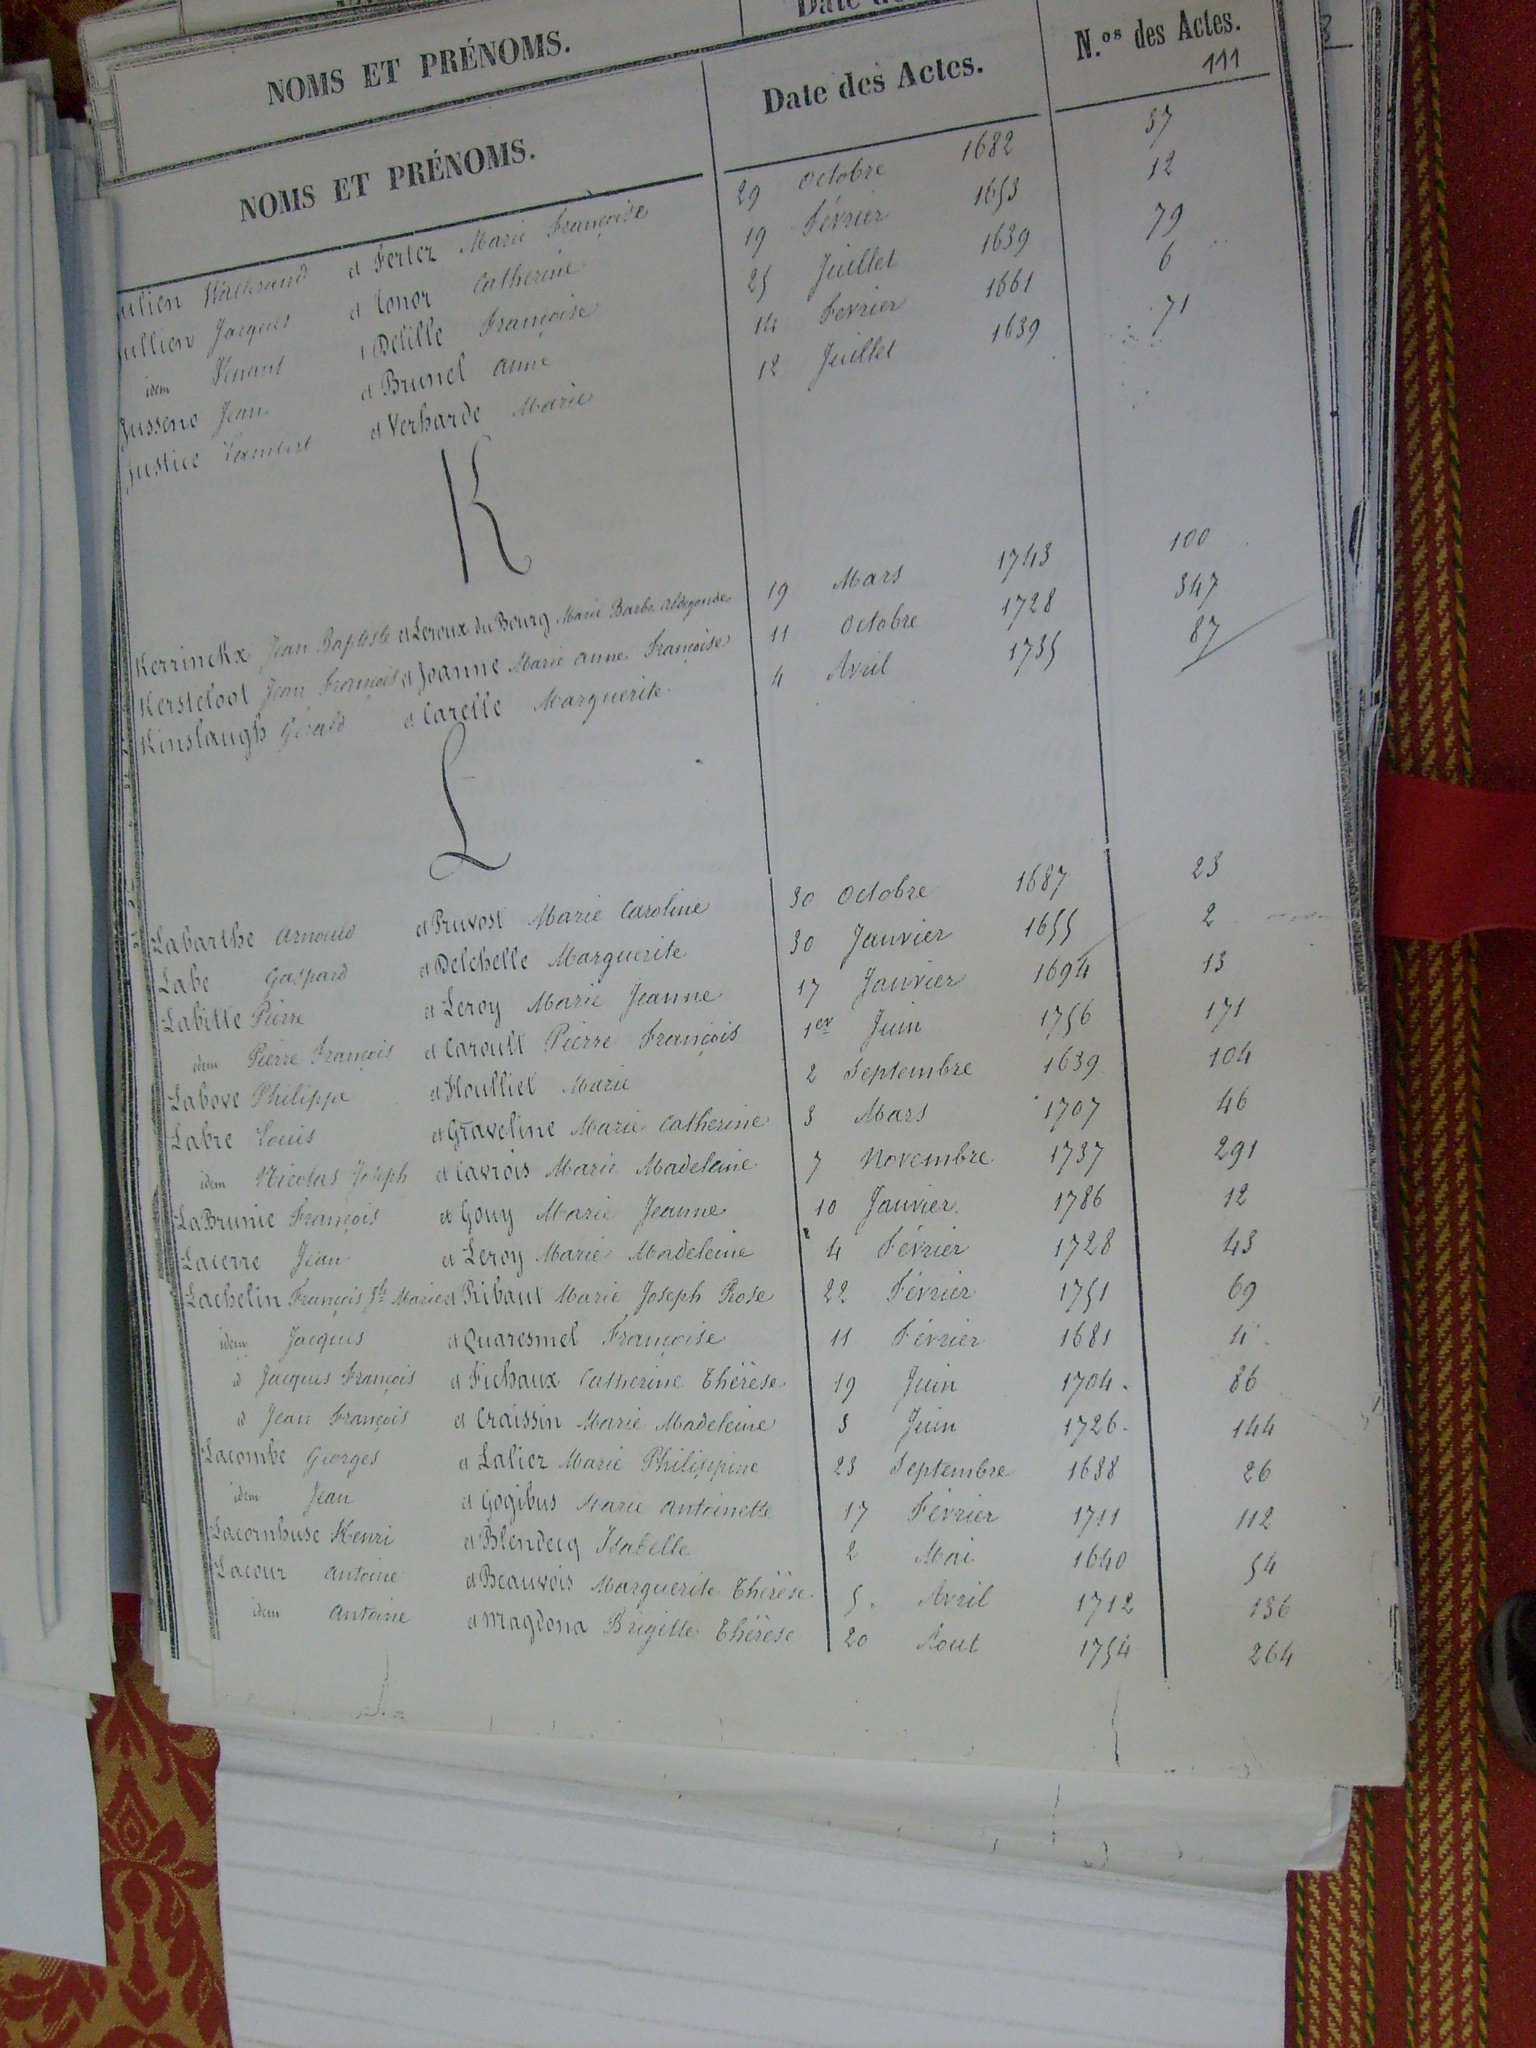 NOMS ET PRÉNOMS.
NOMS ET PRÉNOMS. Date des Actes. N.os des Actes.
111
Jullien Wallerand et Ferlez Marie Françoise 29 Octobre 1682 37
Jullien Jacques et Conor Catherine 19 Février 1653 12
idem Venant Delille Françoise 25 Juillet 1639 79
Jusseno Jean et Brunel Anne 14 Février 1661 6
Justice Lambert et Verharde Marie 12 Juillet 1639 71
K
Kerrinckx Jean Baptiste et Leroux du Bourg Marie Barbe Aldegonde 19 Mars 1743 100
Kersteloot Jean François et Joanne Marie Anne Françoise 11 Octobre 1728 347
Kinslaugh Gérald et Carelle Marguerite 4 Avril 1735 87
L
Labarthe Arnould et Pruvost Marie Caroline 30 Octobre 1687 23
Labe Gaspard et Delehelle Marguerite 30 Janvier 1655 2
Labitte Pierre et Leroy Marie Jeanne 17 Janvier 1694 13
idem Pierre François et Caroult Pierre François 1er Juin 1756 171
Labove Philippe et Houlliet Marie 2 Septembre 1639 104
Labre Louis et Graveline Marie Catherine 3 Mars 1707 46
idem Nicolas Joseph et Cavrois Marie Madeleine 7 Novembre 1737 291
LaBrunie François et Gouy Marie Jeanne 10 Janvier 1786 12
Lacerre Jean et Leroy Marie Madeleine 4 Février 1728 43
Lachelin François Jh Marie et Ribaut Marie Joseph Rose 22 Février 1751 69
idem Jacques et Quaresmel Françoise 11 Février 1681 4
d Jacques François et Fichaux Catherine Thérèse 19 Juin 1704 86
d Jean François et Craissin Marie Madeleine 3 Juin 1726 144
Lacombe Georges et Lalier Marie Philippine 23 Septembre 1688 26
idem Jean et Gogibus Marie Antoinette 17 Février 1711 112
Lacornhuse Henri et Blendecq Isabelle 2 Mai 1640 54
Lacour Antoine et Beauvois Marguerite Thérèse 5 Avril 1712 136
idem Antoine et Magdona Brigitte Thérèse 20 Aout 1754 264